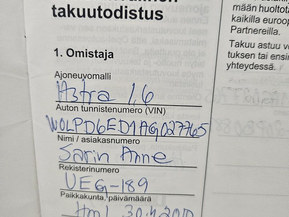 takuutodistus
1. Omistaja
Ajoneuvomalli
Astra 1,6
Auton tunnistenumero (VIN)
W0LPD6ED1AG027765
Nimi / asiakasnumero
Sarin Anne
Rekisterinumero
UEG-189
Paikkakunta, päivämäärä
mään huoltota
kaikilla euroop
Partnereilla.
Takuu astuu v
tuksen tai ensi
yhteydessä.